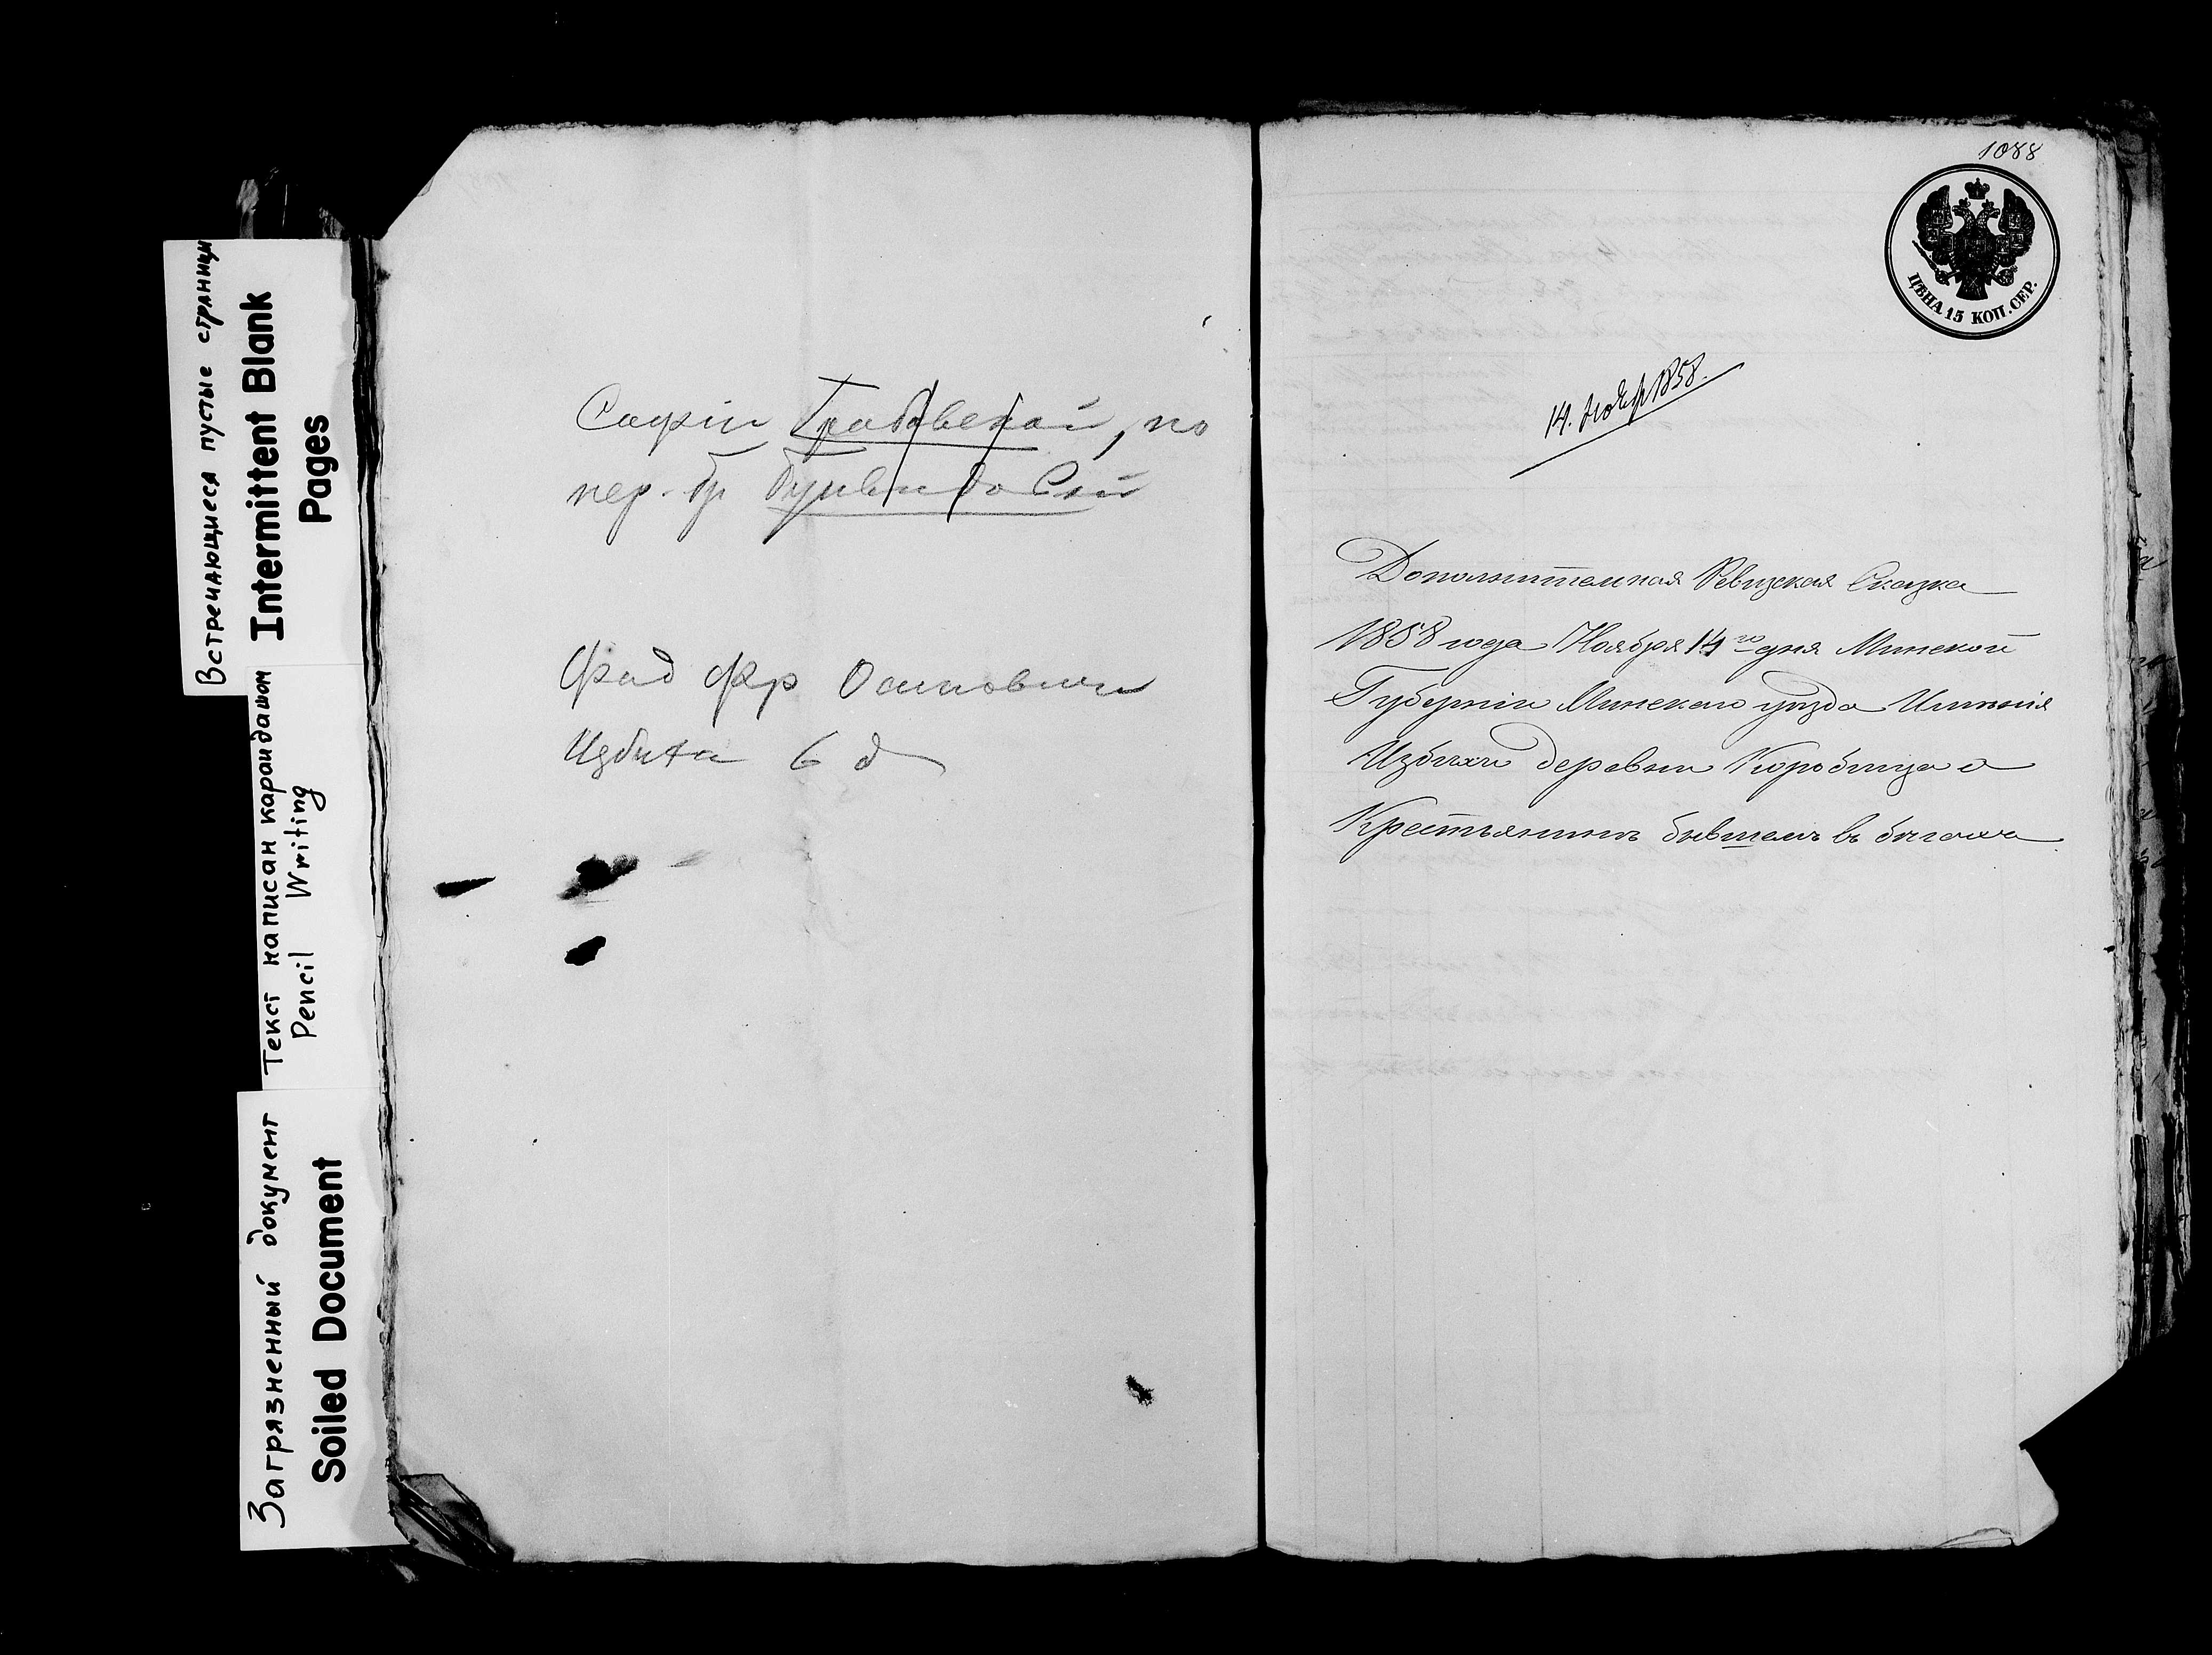 Встречающиеся пустые страницы
Intermittent Blank
Pages
Текст написан карандашом
Pencil Writing
Загрязненный документ
Soiled Document
Софіи Грабовской, по
пер. бр
Фад Фр Осиповичи
Избита 6 д
1088
ЦѢНА 15 КОП. СЕР.
14. Ноябр 1858.
Дополнительная Ревизская Сказка
1858 года Ноября 14го дня Минской
Губерніи Минского уѣзда Имѣнія
Избихи деревни Коробица о
Крестьянинѣ бывшемъ въ бѣгахъ